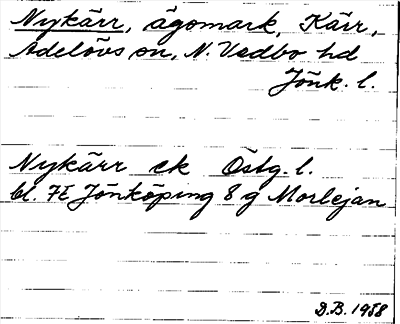 Nykärr, ägomark, Kärr,
Adelövs sn, N. Vedbo hd
Jönk. l.
Nykärr ek Östg. l.
bl. 7E Jönköping 8 g Morlejan
D.B. 1958